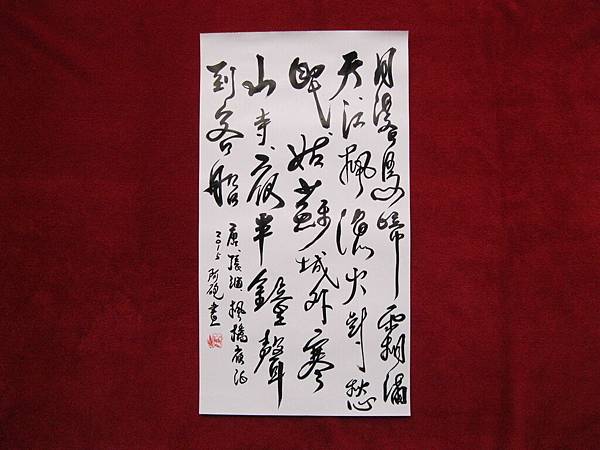 月落烏啼霜滿
天江楓漁火對愁
眠姑蘇城外寒
山寺夜半鐘聲
到客船
唐張繼楓橋夜泊
2015 阿硯書